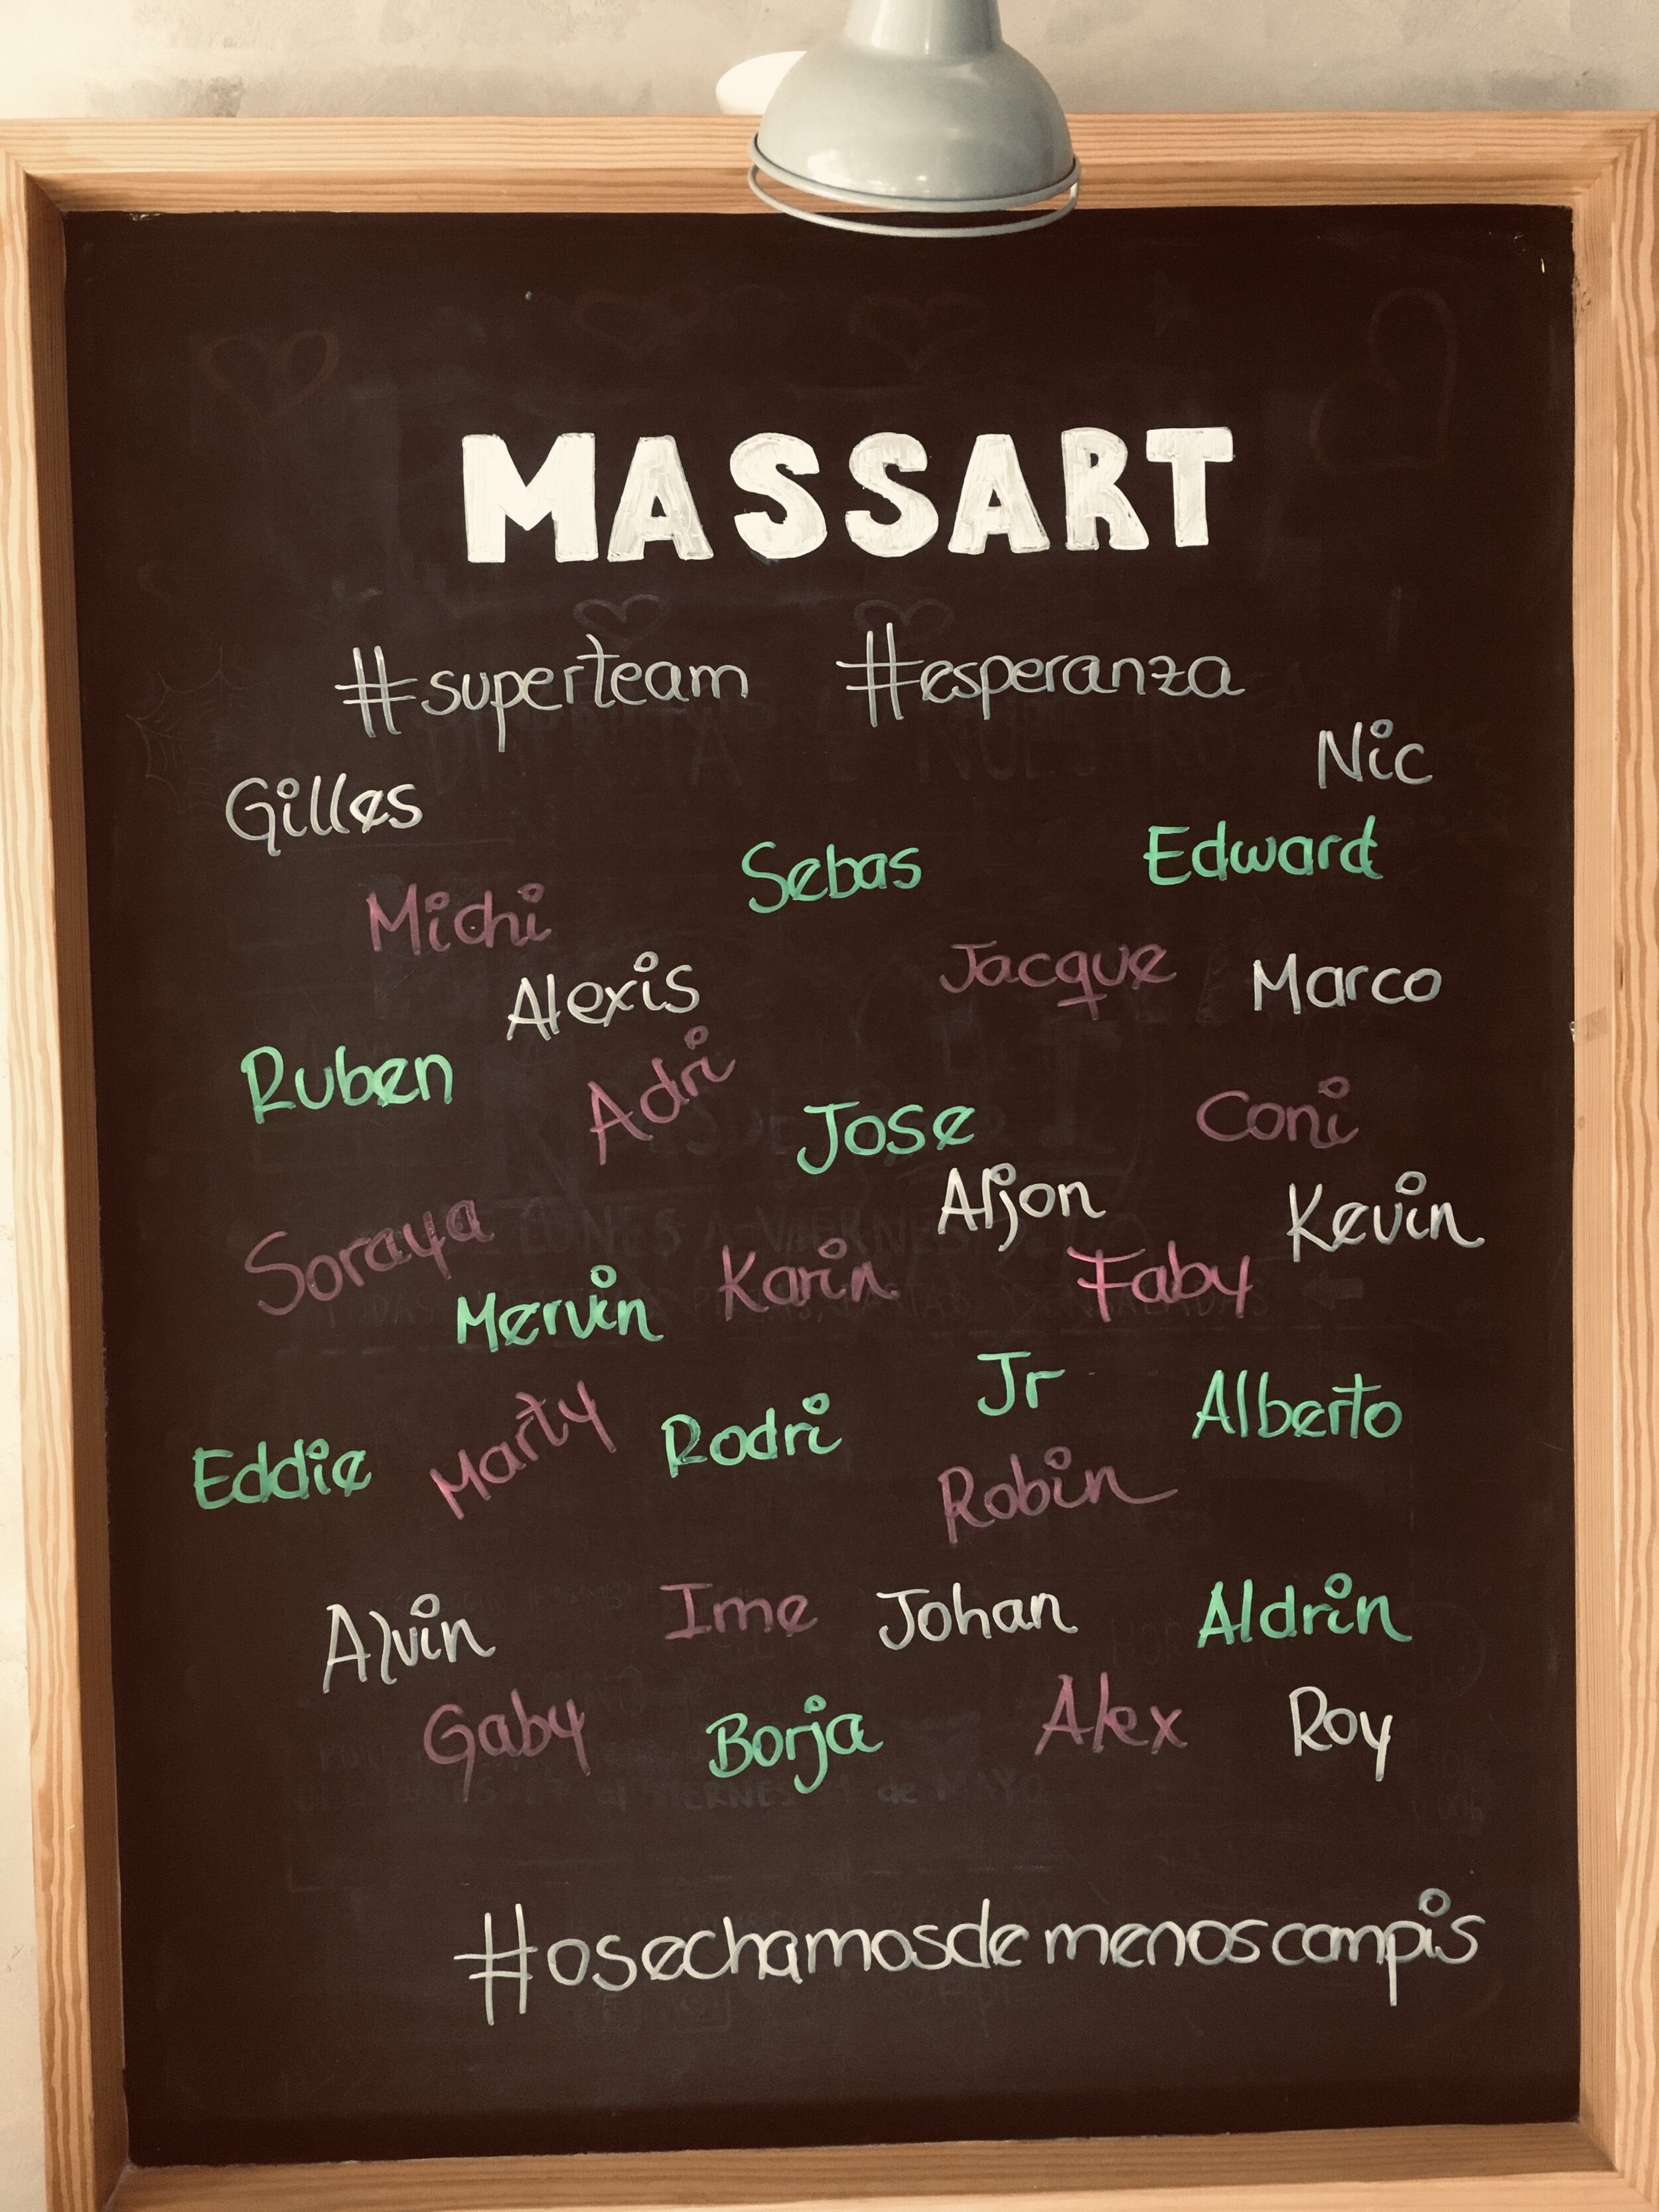 MASSART
#superteam #esperanza
Nic
Gilles
Sebas Edward
Michi
Jacque Marco
Alexis
Ruben Adri
Jose Coni
Aljon Kevin
Soraya Karin Faby
Mervin
Jr Alberto
Eddie Marty Rodri
Robin
Alvin Ime Johan Aldrin
Gaby Borja Alex Roy
#osechamosdemenoscompis